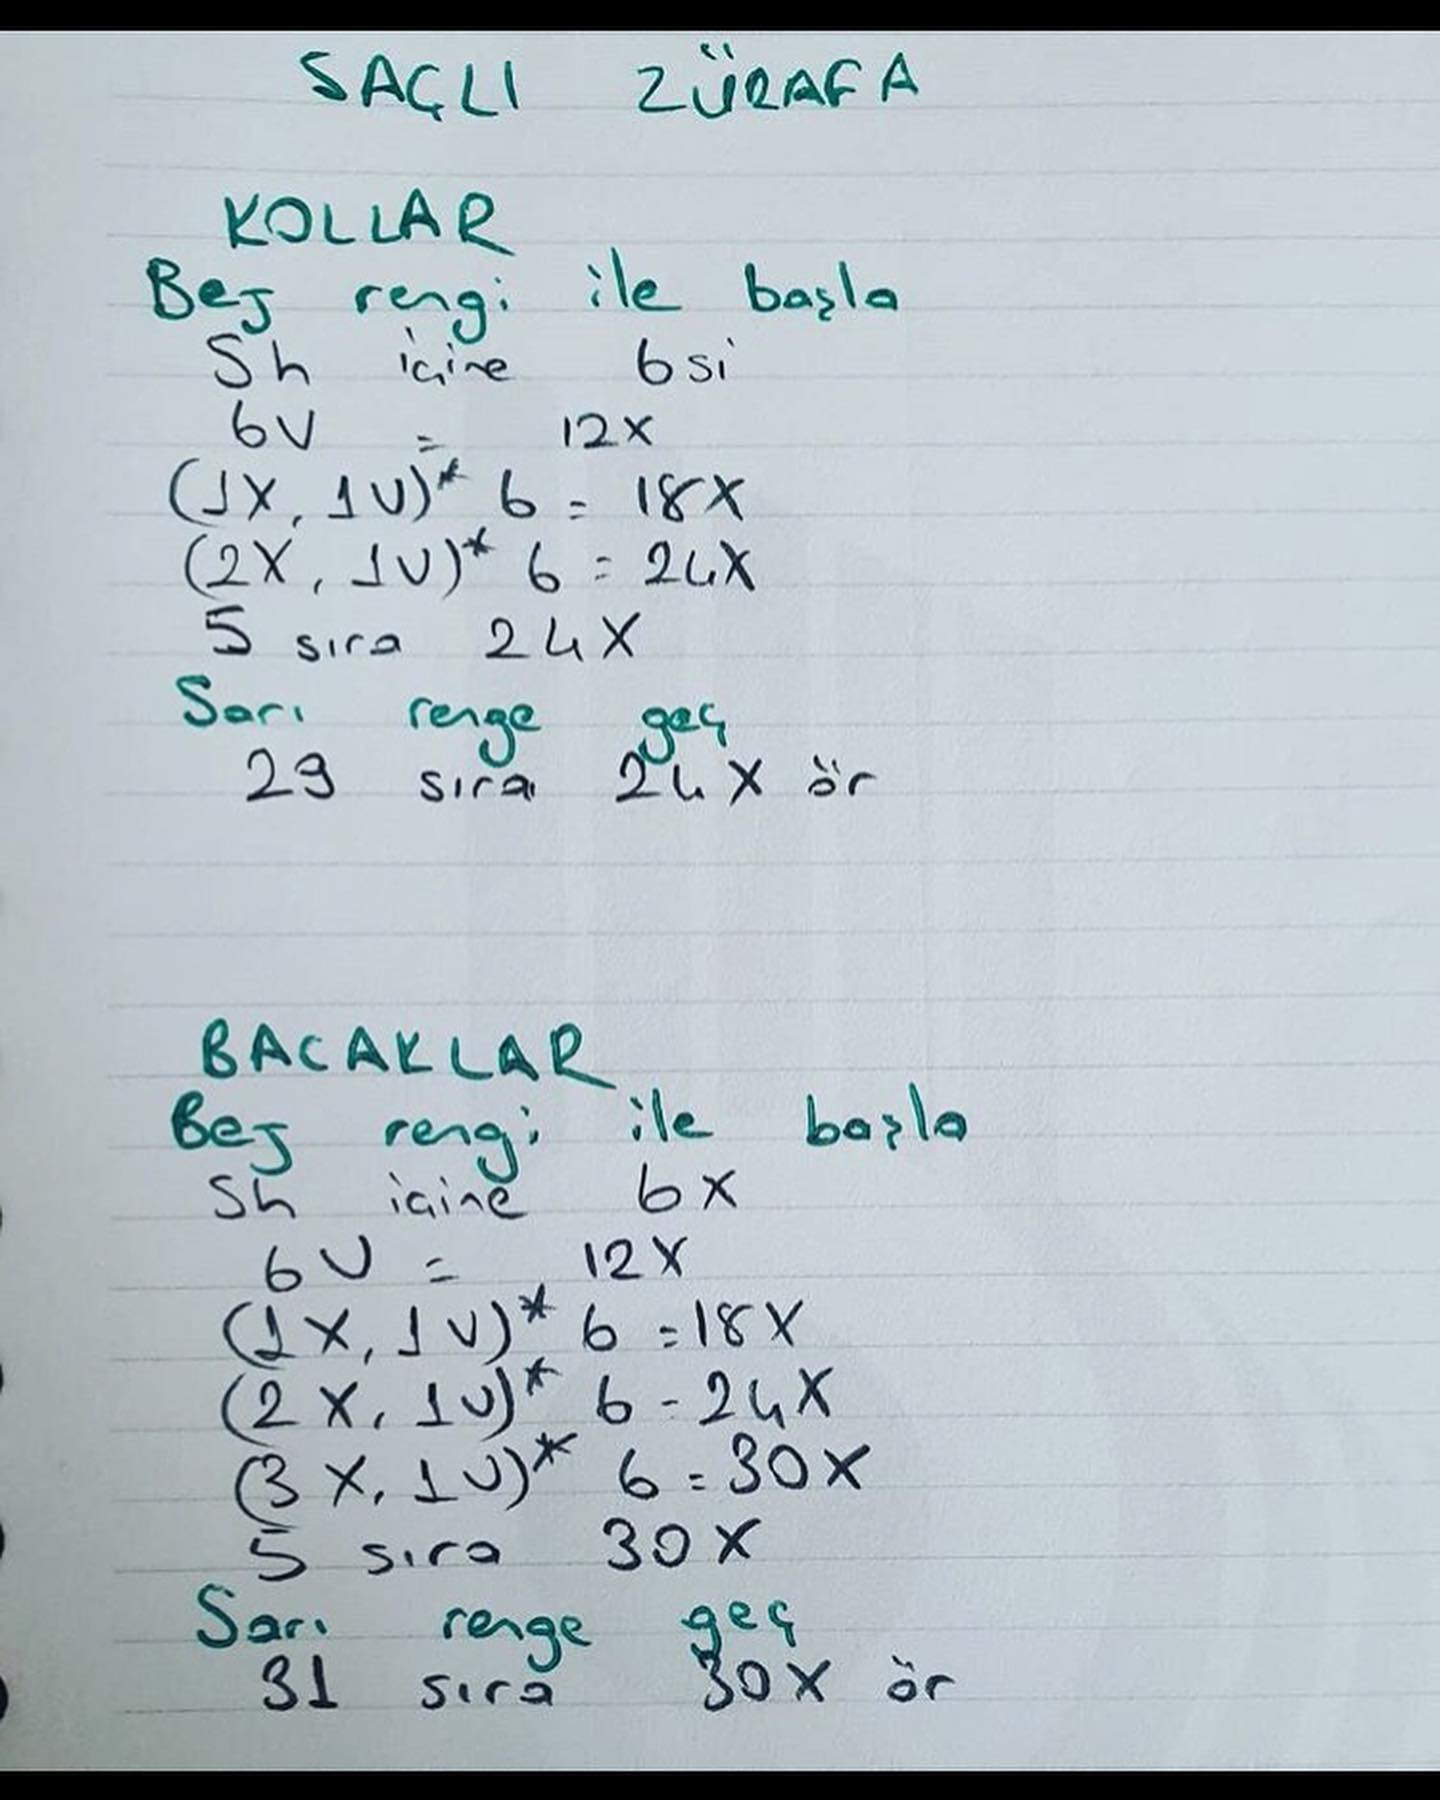 SAÇLI ZÜRAFA
KOLLAR
Bej rengi ile başla
Sh içine 6si
6V = 12X
(1X, 1V)* 6 = 18X
(2X, 1V)* 6 = 24X
5 sıra 24X
Sarı renge geç
29 sıra 24X ör
BACAKLAR
Bej rengi ile başla
Sh içine 6X
6V = 12X
(1X, 1V)* 6 = 18X
(2X, 1V)* 6 - 24X
(3X, 1V)* 6 = 30X
5 sıra 30X
Sarı renge geç
31 sıra 30X ör